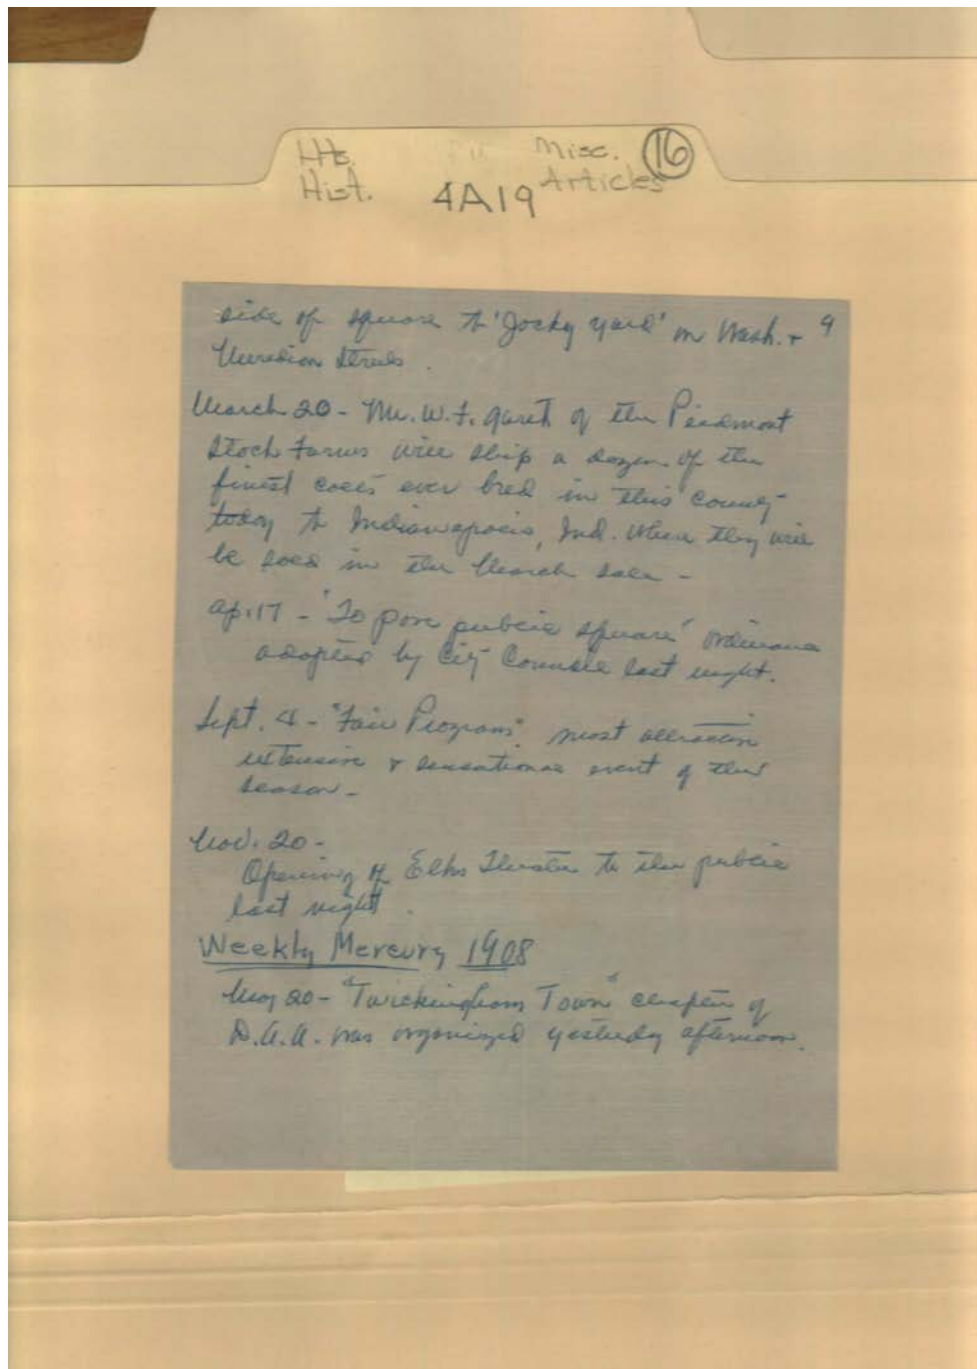 Hts. Misc. 16
Hist. 4A19 Articles
side of square to 'Jocky yard' on Wash. + 9
Meredian Streets.
March 20 - Mr. W. F. Garth of the Piedmont
Stock Farms will ship a dozen of the
finest colts ever bred in this county
today to Indianapolis, Ind. where they will
be sold in the March sale -
Ap. 17 - 'To pave public square' ordinance
adopted by City Council last night.
Sept. 4 - "Fair Program" most attractive
extensive & sensational event of the
season -
Nov. 20 -
Opening of Elks Theatre to the public
last night.
Weekly Mercury 1908
May 20 - "Twickingham Town" chapter of
D.A.R. was organized yesterday afternoon.